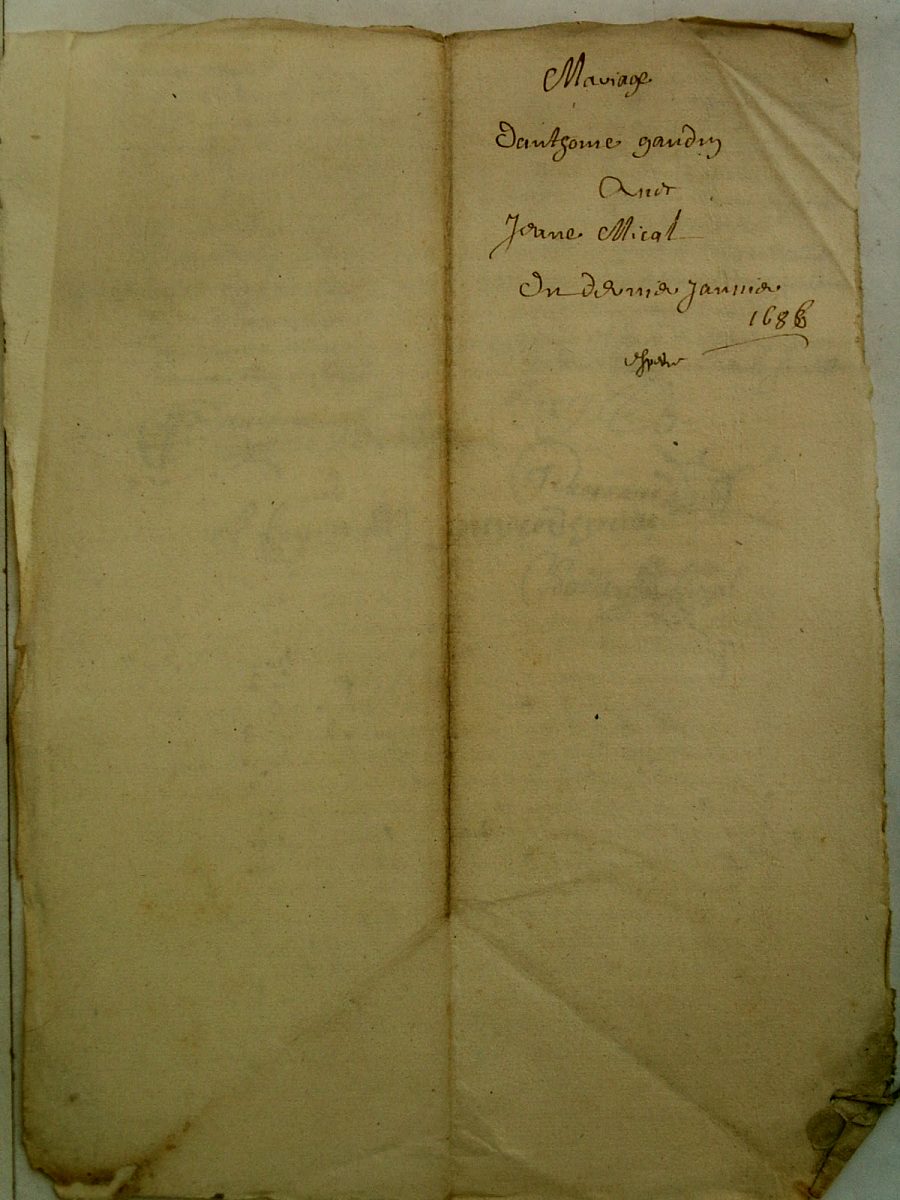 Mariage
Danthoine gaudin
Auec
Jeane Mical
Du dernier Januier
168